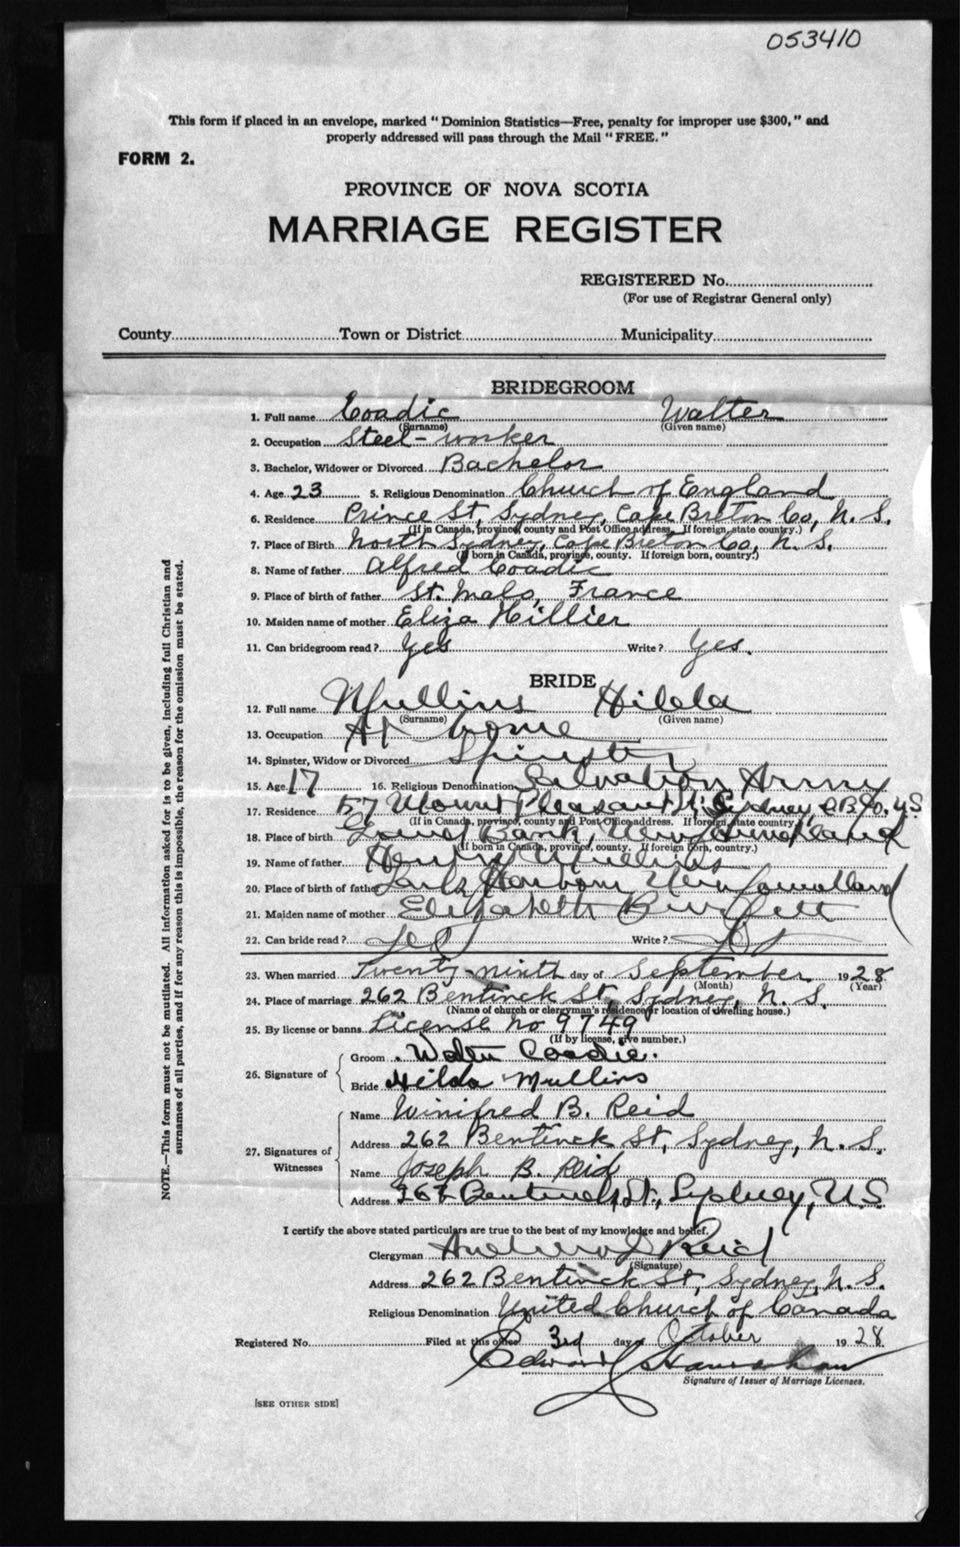 053410
This form if placed in an envelope, marked "Dominion Statistics—Free, penalty for improper use $300," and
properly addressed will pass through the Mail "FREE."
FORM 2.
PROVINCE OF NOVA SCOTIA
MARRIAGE REGISTER
REGISTERED No.
(For use of Registrar General only)
County Town or District Municipality
BRIDEGROOM
1. Full name Coadic Walter
(Surname) (Given name)
2. Occupation Steel-worker
3. Bachelor, Widower or Divorced Bachelor
4. Age 23 5. Religious Denomination Church of England
6. Residence Prince St, Sydney, Cape Breton Co, N. S.
(If in Canada, province, county and Post Office address. If foreign, state country.)
7. Place of Birth North Sydney, Cape Breton Co, N. S.
(If born in Canada, province, county. If foreign born, country.)
8. Name of father Alfred Coadic
9. Place of birth of father St. Malo, France
10. Maiden name of mother Eliza Hillier
11. Can bridegroom read? Yes Write? Yes.
BRIDE
12. Full name Mullins Hilda
(Surname) (Given name)
13. Occupation At home
14. Spinster, Widow or Divorced Spinster
15. Age 17 16. Religious Denomination Salvation Army
17. Residence 57 Mount Pleasant St, Sydney C.B.Co. N.S.
(If in Canada, province, county and Post Office address. If foreign, state country.)
18. Place of birth Grand Bank, Newfoundland
(If born in Canada, province, county. If foreign born, country.)
19. Name of father Henry Mullins
20. Place of birth of father Harbour Newfoundland
21. Maiden name of mother Elizabeth
22. Can bride read? Yes Write? Yes
23. When married Twenty-ninth day of September 1928
(Month) (Year)
24. Place of marriage 262 Bentinck St, Sydney, N. S.
(Name of church or clergyman's residence or location of dwelling house.)
25. By license or banns License no 9749
(If by license, give number.)
26. Signature of
Groom Walter Coadic.
Bride Hilda Mullins
27. Signatures of Witnesses
Name Winifred B. Reid
Address 262 Bentinck St, Sydney, N. S.
Name Joseph B. Reid
Address 262 Bentinck St., Sydney, N.S.
I certify the above stated particulars are true to the best of my knowledge and belief.
Clergyman Reid
(Signature)
Address 262 Bentinck St, Sydney, N. S.
Religious Denomination United Church of Canada
Registered No. Filed at this office 3rd day of October 1928
Edward
Signature of Issuer of Marriage Licenses.
[SEE OTHER SIDE]
NOTE.—This form must not be mutilated. All information asked for is to be given, including full Christian and
surnames of all parties, and if for any reason this is impossible, the reason for the omission must be stated.